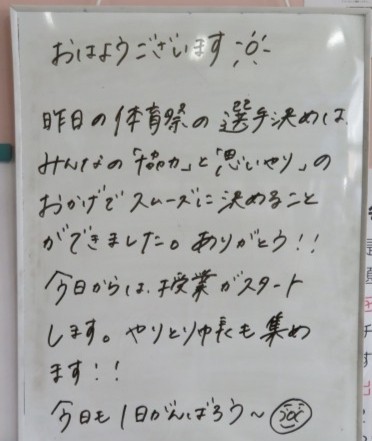 おはようございます
昨日の体育祭の選手決めは、
みんなの「協力」と「思いやり」の
おかげでスムーズに決めること
ができました。ありがとう!!
今日からは、授業がスタート
します。やりとり帳も集め
ます!!
今日も1日がんばろう〜